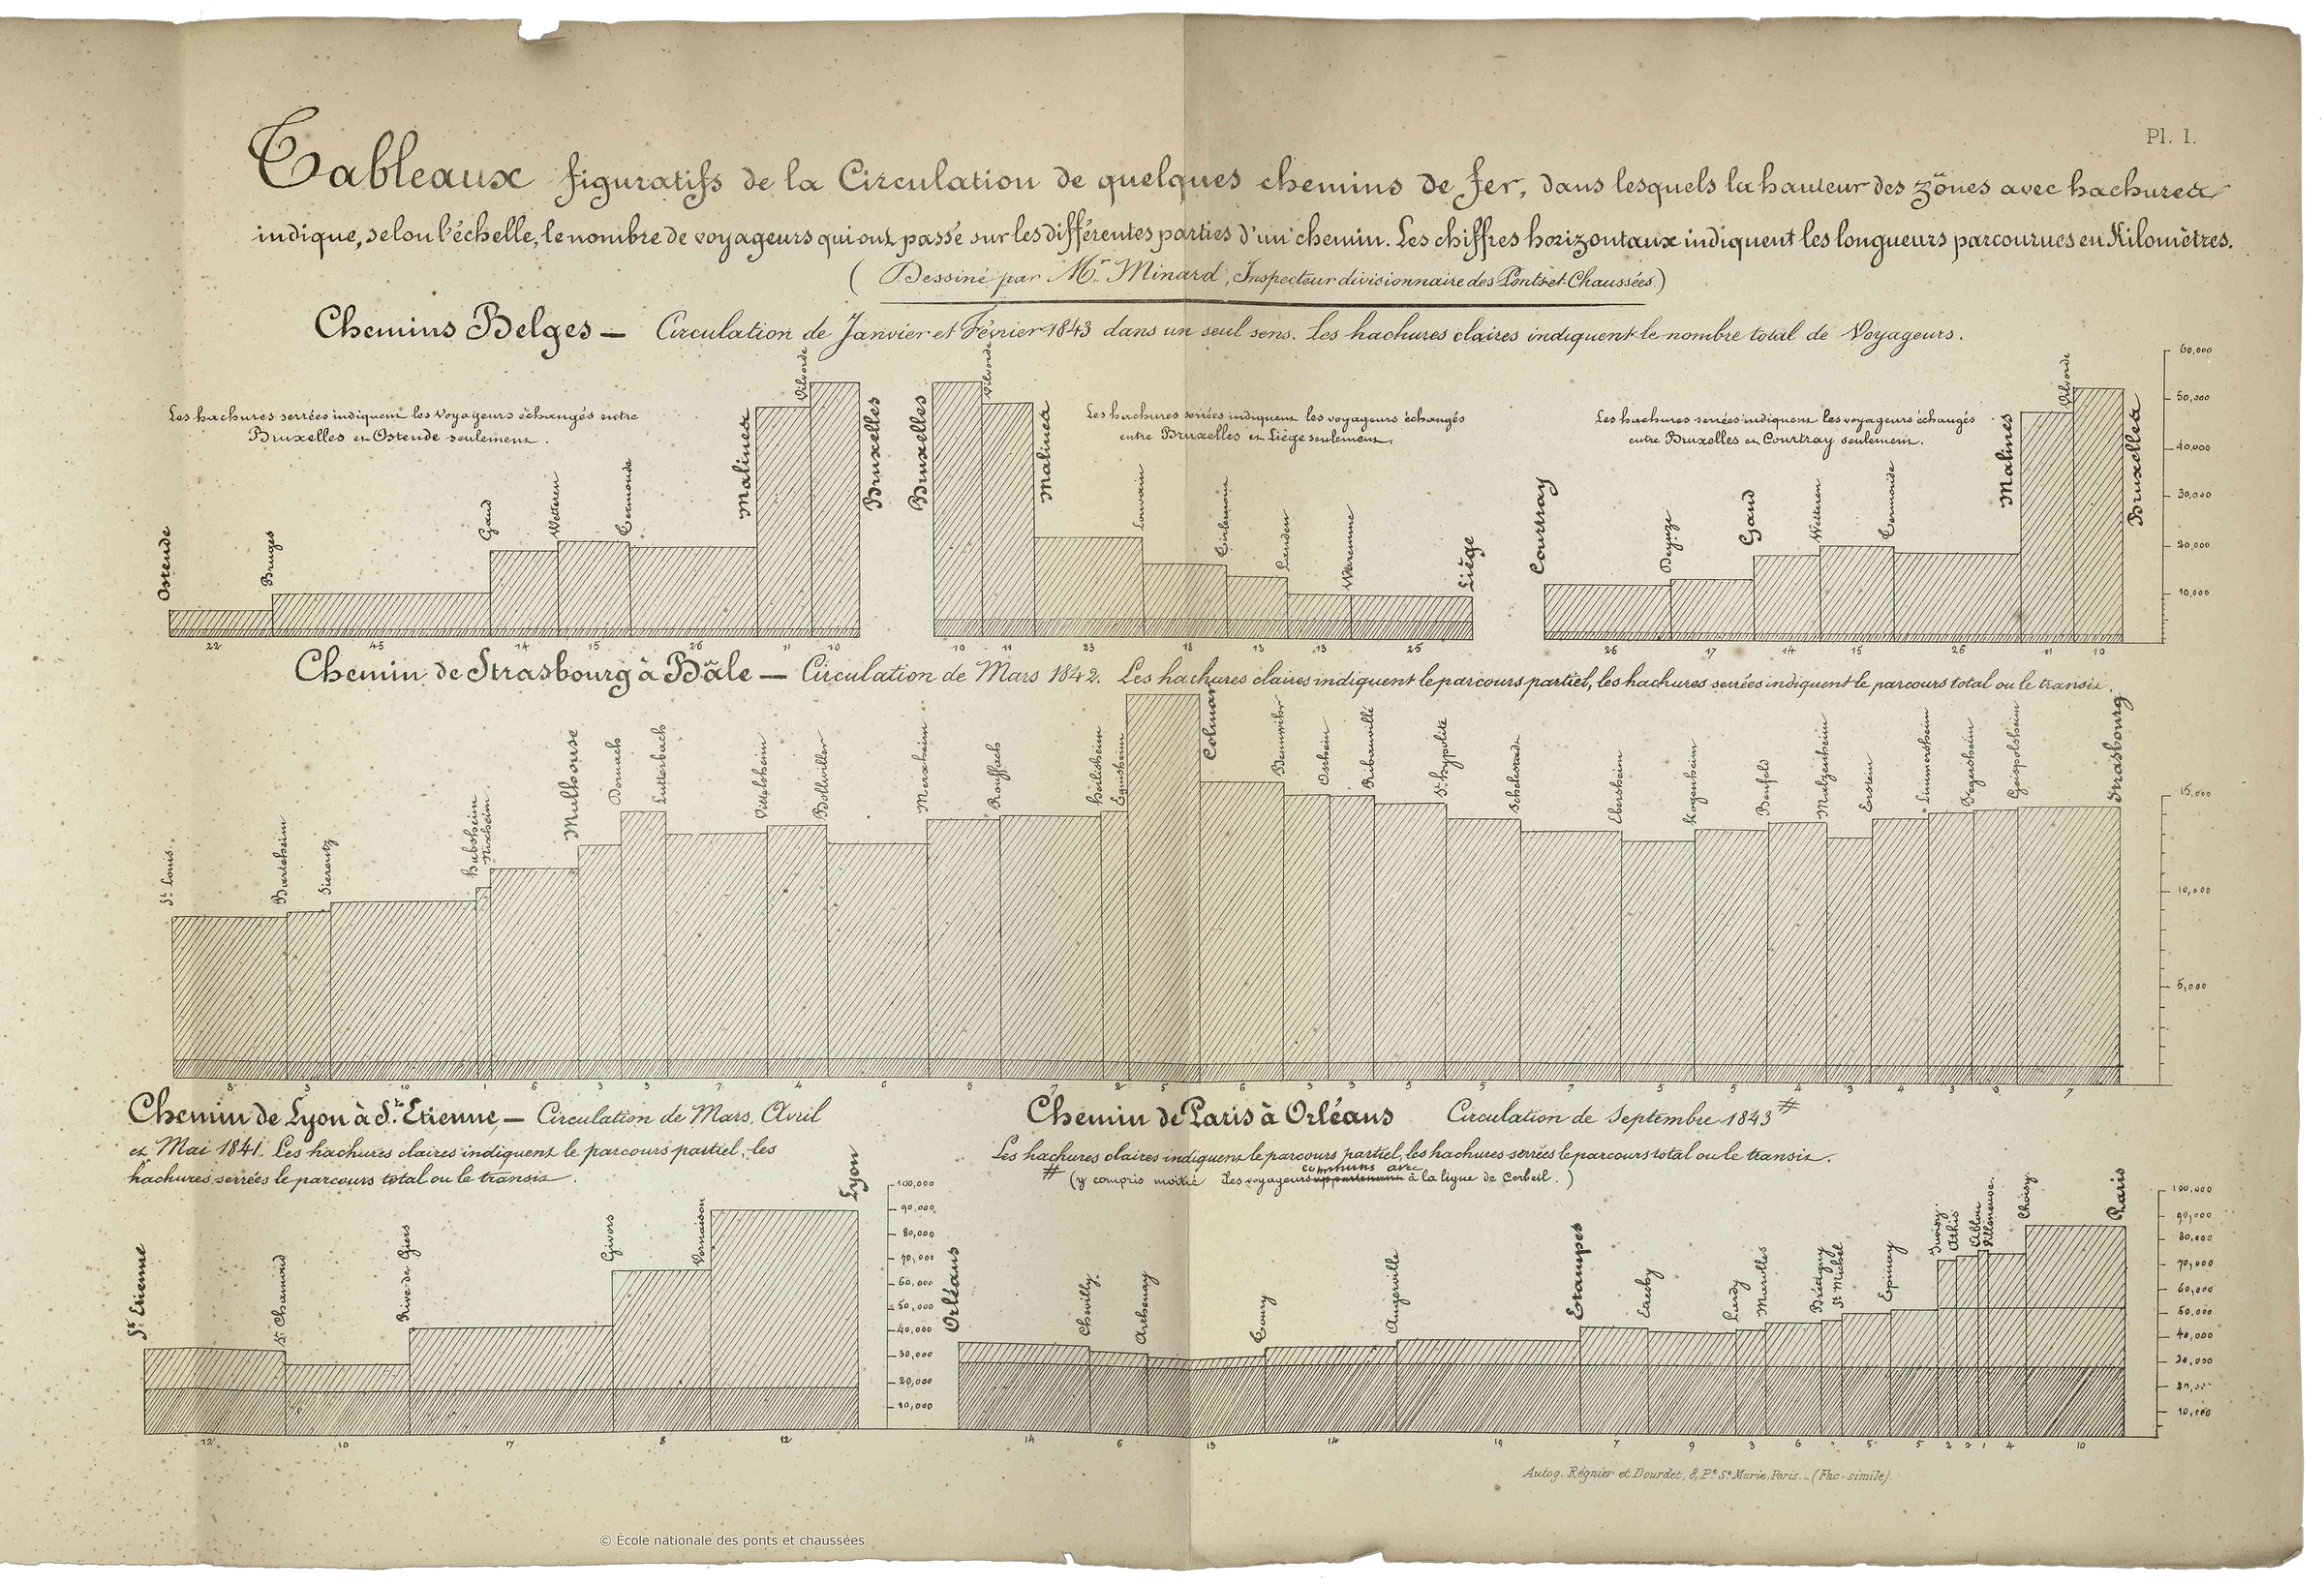 Pl. I.
Tableaux figuratifs de la Circulation de quelques chemins de fer, dans lesquels la hauteur des zônes avec hachures
indique, selon l'échelle, le nombre de voyageurs qui ont passé sur les différentes parties d'un chemin. Les chiffres horizontaux indiquent les longueurs parcourues en Kilomètres.
(Dessiné par Mr. Minard, Inspecteur divisionnaire des Ponts et Chaussées.)
Chemins Belges — Circulation de Janvier et Février 1843 dans un seul sens. Les hachures claires indiquent le nombre total de Voyageurs.
Les hachures serrées indiquent les voyageurs échangés entre
Bruxelles et Ostende seulement.
Ostende Bruges Gand Wetteren Termonde Malines Vilvorde Bruxelles
22 45 14 15 26 11 10
Les hachures serrées indiquent les voyageurs échangés
entre Bruxelles et Liège seulement.
Bruxelles Vilvorde Malines Louvain Tirlemont Landen Waremme Liège
10 11 23 18 13 13 25
Les hachures serrées indiquent les voyageurs échangés
entre Bruxelles et Courtray seulement.
Courtray Deynze Gand Wetteren Termonde Malines Vilvorde Bruxelles
26 17 14 15 26 11 10
60,000
50,000
40,000
30,000
20,000
10,000
Chemin de Strasbourg à Bâle — Circulation de Mars 1842. Les hachures claires indiquent le parcours partiel, les hachures serrées indiquent le parcours total ou le transit.
St. Louis Bartenheim Sierentz Habsheim Rixheim Mulhouse Dornach Lutterbach Wittelsheim Bollwiller Merxheim Rouffach Herlisheim Eguisheim Colmar Bennwihr Ostheim Ribeauvillé St. Hypolite Schelestadt Ebersheim Kogenheim Benfeld Matzenheim Erstein Limmersheim Fegersheim Geispolsheim Strasbourg
8 3 10 1 6 3 3 7 4 6 5 7 2 5 6 3 3 5 5 7 5 5 4 3 4 3 3 7
15,000
10,000
5,000
Chemin de Lyon à St. Etienne, — Circulation de Mars, Avril
et Mai 1841. Les hachures claires indiquent le parcours partiel, les
hachures serrées le parcours total ou le transit.
St. Etienne St. Chamond Rive de Giers Givors Vernaison Lyon
12 10 17 8 12
100,000
90,000
80,000
70,000
60,000
50,000
40,000
30,000
20,000
10,000
Chemin de Paris à Orléans Circulation de Septembre 1843 #
Les hachures claires indiquent le parcours partiel, les hachures serrées le parcours total ou le transit.
# (y compris moitié des voyageurs communs avec à la ligne de Corbeil.)
Orléans Chevilly Arthenay Toury Angerville Etampes Etrechy Lardy Marolles Brétigny St. Michel Epinay Juvisy Athis Ablon Villeneuve Choisy Paris
14 6 13 14 19 7 9 3 6 5 5 2 2 1 4 10
100,000
90,000
80,000
70,000
60,000
50,000
40,000
30,000
20,000
10,000
Autog. Régnier et Dourdet, 8, Pe. Ste Marie, Paris. — (Fac-simile).
© École nationale des ponts et chaussées